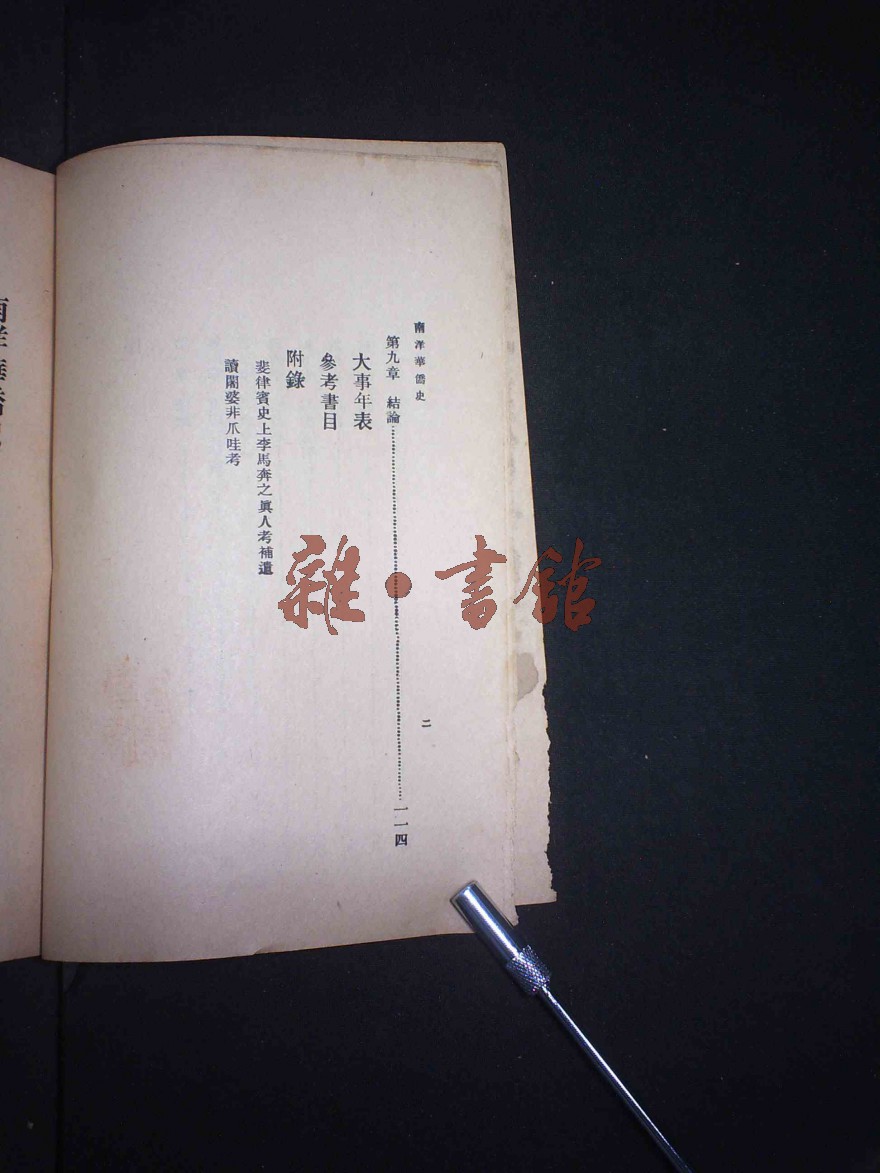 南洋華僑史
第九章 結論………………一一四
大事年表
參考書目
附錄
斐律賓史上李馬奔之眞人考補遺
讀闍婆非爪哇考
二
雜·書館
南洋華僑